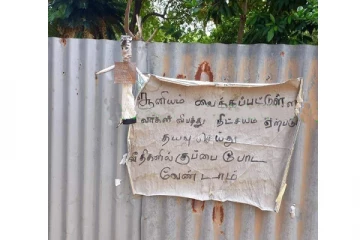 சூனியம் வைக்கப்பட்டுள்ள
விபத்து நிட்சயம்
தயவு செய்து
வீதிகளில் குப்பை போட
வேண்டாம்